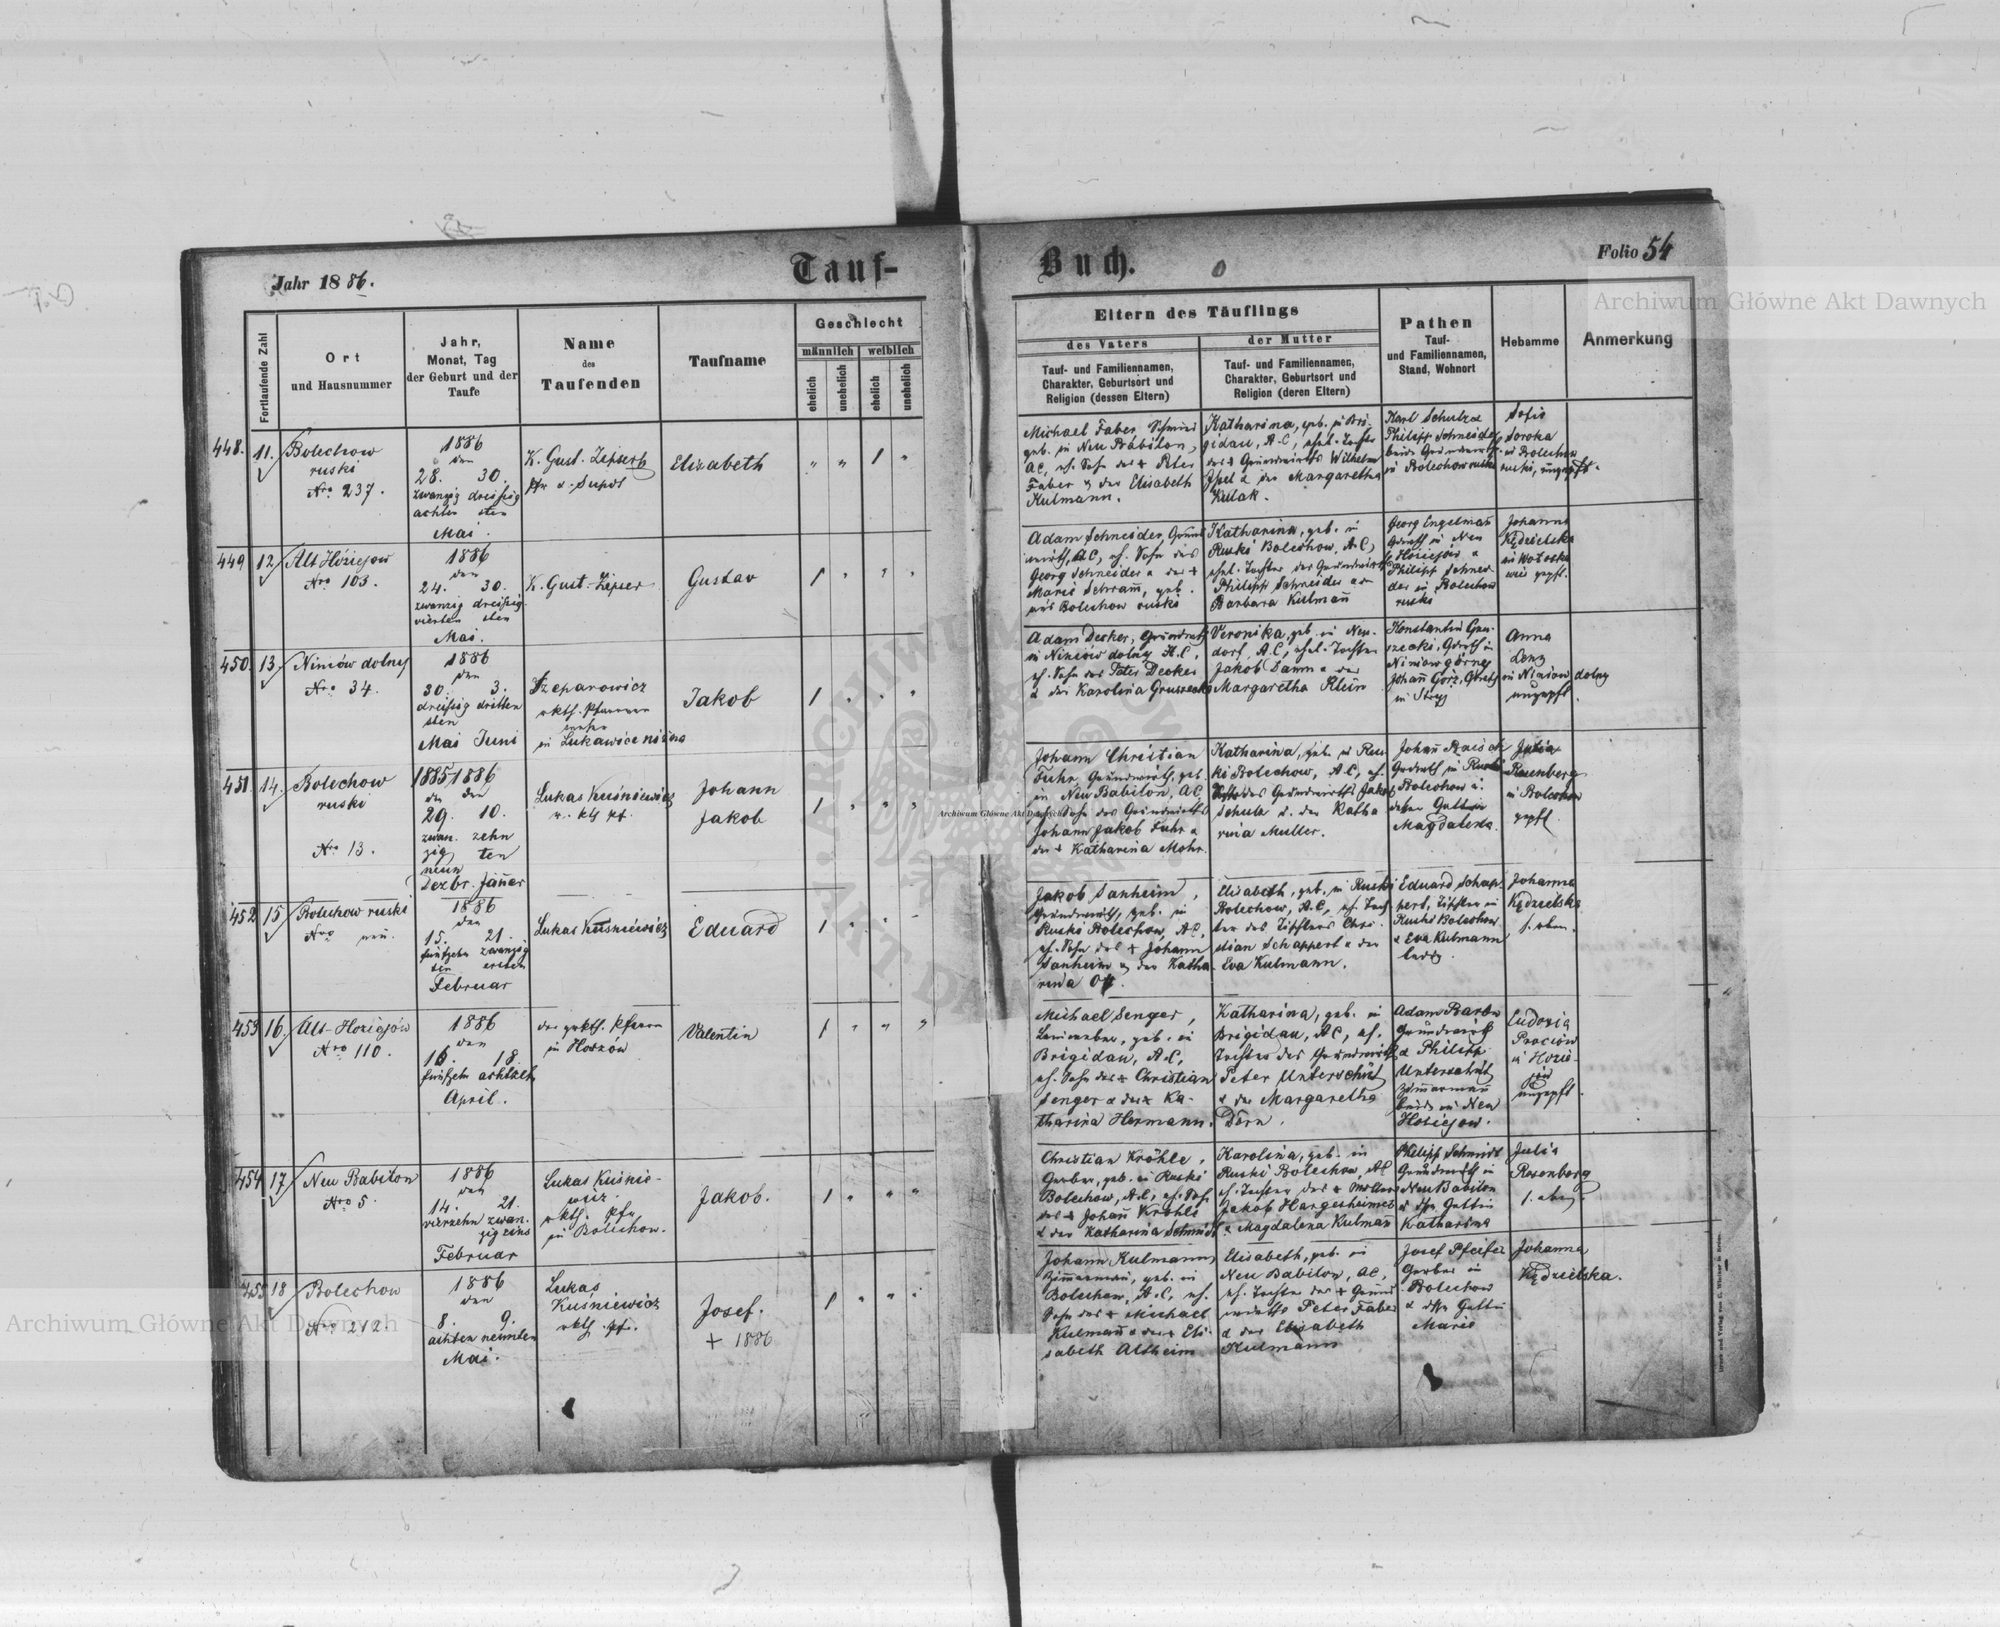 Jahr 1886.
Tauf-
Buch.
Folio 54
Fortlaufende Zahl
Ort
und Hausnummer
Jahr,
Monat, Tag
der Geburt und der
Taufe
Name
des
Taufenden
Taufname
Geschlecht
männlich weiblich
ehelich
unehelich
ehelich
unehelich
Eltern des Täuflings
des Vaters
der Mutter
Tauf- und Familiennamen,
Charakter, Geburtsort und
Religion (dessen Eltern)
Tauf- und Familiennamen,
Charakter, Geburtsort und
Religion (deren Eltern)
Pathen
Tauf-
und Familiennamen,
Stand, Wohnort
Hebamme
Anmerkung
448. 11.
Bolechow
ruski
Nro 237.
1886
den
28. 30.
zwanzig dreißig
achten sten
Mai.
K. Gust. Zipser
Elisabeth
Michael Faber
geb. in Neu Babilon,
AC, eh. Sohn des + Peter
Faber & der Elisabeth
Kulmann.
Katharina, geb. in Bri-
gidau, A.C., ehel. Tochter
des + Grundwirths Wilhelm
& der Margaretha
Kulak.
Karl Schulz &
Philipp Schneider,
beide
in Bolechow ruski
Sofie
Soroka
in Bolechow
ruski, ungepft.
449 12.
Alt Hoziejow
Nro 103.
1886
den
24. 30.
zwanzig dreißig
vierten sten
Mai.
K. Gust. Zipser
Gustav
Adam Schneider, Grund
wirth, AC, eh. Sohn des
Georg Schneider & der +
Marie Schramm, geb.
aus Bolechow ruski
Katharina, geb. in
Ruski Bolechow, A.C,
ehel. Tochter des Grundwirths
Philipp Schneider & der
Barbara Kulmann
Georg Engelmann
in Neu
Hoziejów &
Philipp Schnei-
der in Bolechow
ruski
Johanna
Kędzielska
in Woloska
wieś gepft.
450 13.
Niniów dolny
Nro 34.
1886
den
30. 3.
dreißig dritten
sten
Mai Juni
Szeparowicz
rkth. Pfarrer
in Lukawice niżna
Jakob
Adam Decker, Grundwirth
in Niniow dolny A.C,
eh. Sohn des Peter Decker
& der Karolina Gruszecki
Veronika, geb. in Neu-
dorf, A.C, ehel. Tochter
Jakob Damm & der
Margaretha Klein
Konstantin Gru-
szecki, Grdwth in
Niniow górny
Johann Görz, Grwth
in Stryj
Anna
Lenz
in Niniow dolny
ungepft.
451 14.
Bolechow
ruski
Nro 13.
1885/1886
den den
29. 10.
zwan- zehn
zig ten
neun
Dezbr. Jänner
Lukas Kuśniewicz
Johann
Jakob
Johann Christian
Fuhr, Grundwirth, geb.
in Neu Babilon, AC,
eh. Sohn des Grundwirths
Johann Jakob Fuhr &
der + Katharina Mohr.
Katharina, geb. in Rus-
ki Bolechow, A.C, eh.
Tochter des Grundwirths Jakob
Schulz & der Katha
rina Muller.
Johann
Grdwth in Ruski
Bolechow &
dessen Gattin
Magdalena.
Julia
Rosenberg
in Bolechow
gepft.
452 15
Bolechow ruski
Nro neu.
1886
den
15. 21.
fünfzehn zwanzig
ten ersten
Februar
Lukas Kuśniewicz
Eduard
Jakob Sanheim,
Grundwirth, geb. in
Ruski Bolechow, AC,
eh. Sohn des + Johann
Sanheim & der Katha
rina Ott.
Elisabeth, geb. in Ruski
Bolechow, A.C, eh. Toch-
ter des Tischlers Chri-
stian Schappert & der
Eva Kulmann.
Eduard Schap-
pert, Tischler in
Ruski Bolechow
& Eva Kulmann
ledig.
Johanna
Kędzielska
s. oben.
453 16.
Alt-Hoziejów
Nro 110.
1886
den
16. 18.
fünfzehn achtzehn
April.
der grkth. Pfarrer
in Hoszów
Valentin
Michael Senger,
geb. in
Brigidau, A.C,
eh. Sohn des + Christian
Senger & der + Ka-
tharina Hermann.
Katharina, geb. in
Brigidau, AC, eh.
Tochter des Grundwirths
Peter Unterschütz
& der Margaretha
Dörn.
Adam
Grundwirth
& Philipp
Unterschütz
Zimmermann
beide in Neu
Hoziejow.
Ludovia
Prociów
in Hozie-
jów
ungepft.
454 17
Neu Babilon
Nro 5.
1886
den
14. 21.
vierzehn zwan-
zigeins
Februar
Lukas Kuśnie-
wicz.
rkth. Pfr
in Bolechow.
Jakob.
Christian Kröhle,
Gerber, geb. in Ruski
Bolechow, A.C, eh. Sohn
des + Johann Kröhle
& der Katharina Schmidt
Karolina, geb. in
Ruski Bolechow, AC
eh. Tochter des + Müllers
Jakob Hargesheimer
& Magdalena Kulmann
Philipp Schmidt
Grundwirth in
Neu Babilon
& dssn Gattin
Katharina
Julia
Rosenberg
s. oben
455 18
Bolechow
Nro 212.
1886
den
8. 9.
achten neunten
Mai.
Lukas
Kuśniewicz
rkth. Pfr.
Josef.
+ 1886
Johann Kulmann,
Zimmermann, geb. in
Bolechow, A.C, eh.
Sohn des + Michael
Kulmann & der + Eli-
sabeth Altheim
Elisabeth, geb. in
Neu Babilon, AC,
eh. Tochter des + Grund-
wirths Peter Faber
& der Elisabeth
Kulmann
Josef Pfeifer
Gerber in
Bolechow
& dssn Gattin
Marie
Johanna
Kędzielska.
Archiwum Główne Akt Dawnych
Archiwum Główne Akt Dawnych
Archiwum Główne Akt Dawnych